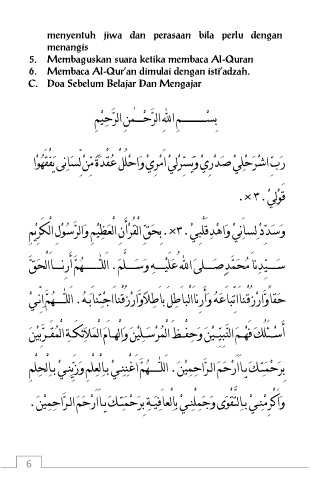 menyentuh jiwa dan perasaan bila perlu dengan
menangis
5. Membaguskan suara ketika membaca Al-Quran
6. Membaca Al-Qur'an dimulai dengan isti'adzah.
C. Doa Sebelum Belajar Dan Mengajar
بِسْـــــمِ اللهِ الرَّحْـــمٰنِ الرَّحِيْمِ
رَبِّ اشْرَحْلِيْ صَدْرِيْ وَيَسِّرْلِيْ اَمْرِيْ وَاحْلُلْ عُقْدَةً مِّنْ لِّسَانِى يَفْقَهُوْا
قَوْلِيْ . ٣× .
وَسَدِّدْ لِسَانِيْ وَاهْدِ قَلْبِيْ . ٣× . بِحَقِّ الْقُرْأٰنِ الْعَظِيْمِ وَالرَّسُوْلِ الْكَرِيْمِ
سَـــيِّدِنَا مُحَمَّدٍ صَــلَى اللهُ عَلَيْـــهِ وَسَـــلَّمَ . اَللّٰـــهُمَّ أَرِنَـــا اَلْحَقَّ
حَقاًّ وَارْزُقْنَا اتِّبَاعَهُ وَأَرِنَا اَلْبَاطِلَ بَاطِلاً وَارْزُقْنَا اجْتِنَابَهُ . اَللّٰــهُمَّ اِنِّيْ
أَسْــئَلُكَ فَهْــمَ النَّبِيِّــيْنَ وَحِفْــظَ الْمُرْسَــلِيْنَ وَاِلْهَــامَ الْمَلَائِكَــةِ الْمُقَــرَّبِيْنَ
بِرَحْمَتِـكَ يَـا اَرْحَـمَ الرَّاحِمِيْنَ . اَللّٰـــهُمَّ اَغْنِنِـيْ بِـالْعِلْمِ وَزَيِّنِـيْ بِـالْحِلْمِ
وَاَكْرِمْنِـيْ بِـالتَّقْوَى وَجَمِّلْنِـيْ بِالْعَافِيَـةِ بِرَحْمَتِـكَ يَـا اَرْحَمَ الرَّاحِمِيْنَ .
6